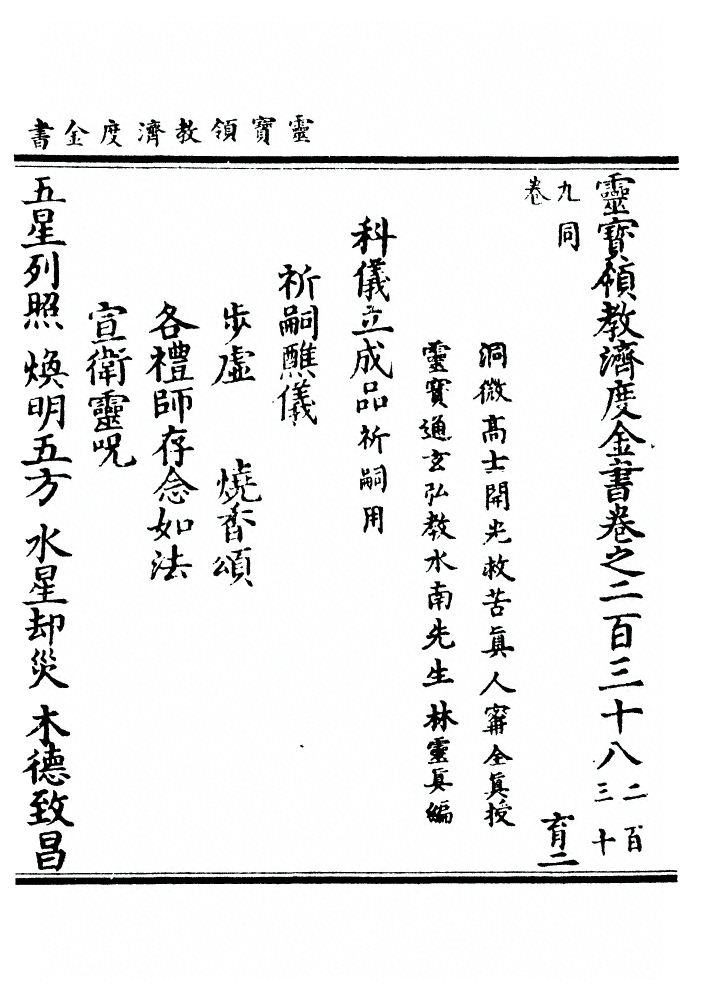 靈寶領教濟度金書
靈寶領教濟度金書卷之二百三十八 二百三十
九同卷
育二
洞微高士開光救苦眞人甯全眞授
靈寶通玄弘教水南先生林靈眞編
科儀立成品祈嗣用
祈嗣醮儀
步虛 燒香頌
各禮師存念如法
宣衛靈呪
五星列照 煥明五方 水星却災 木德致昌